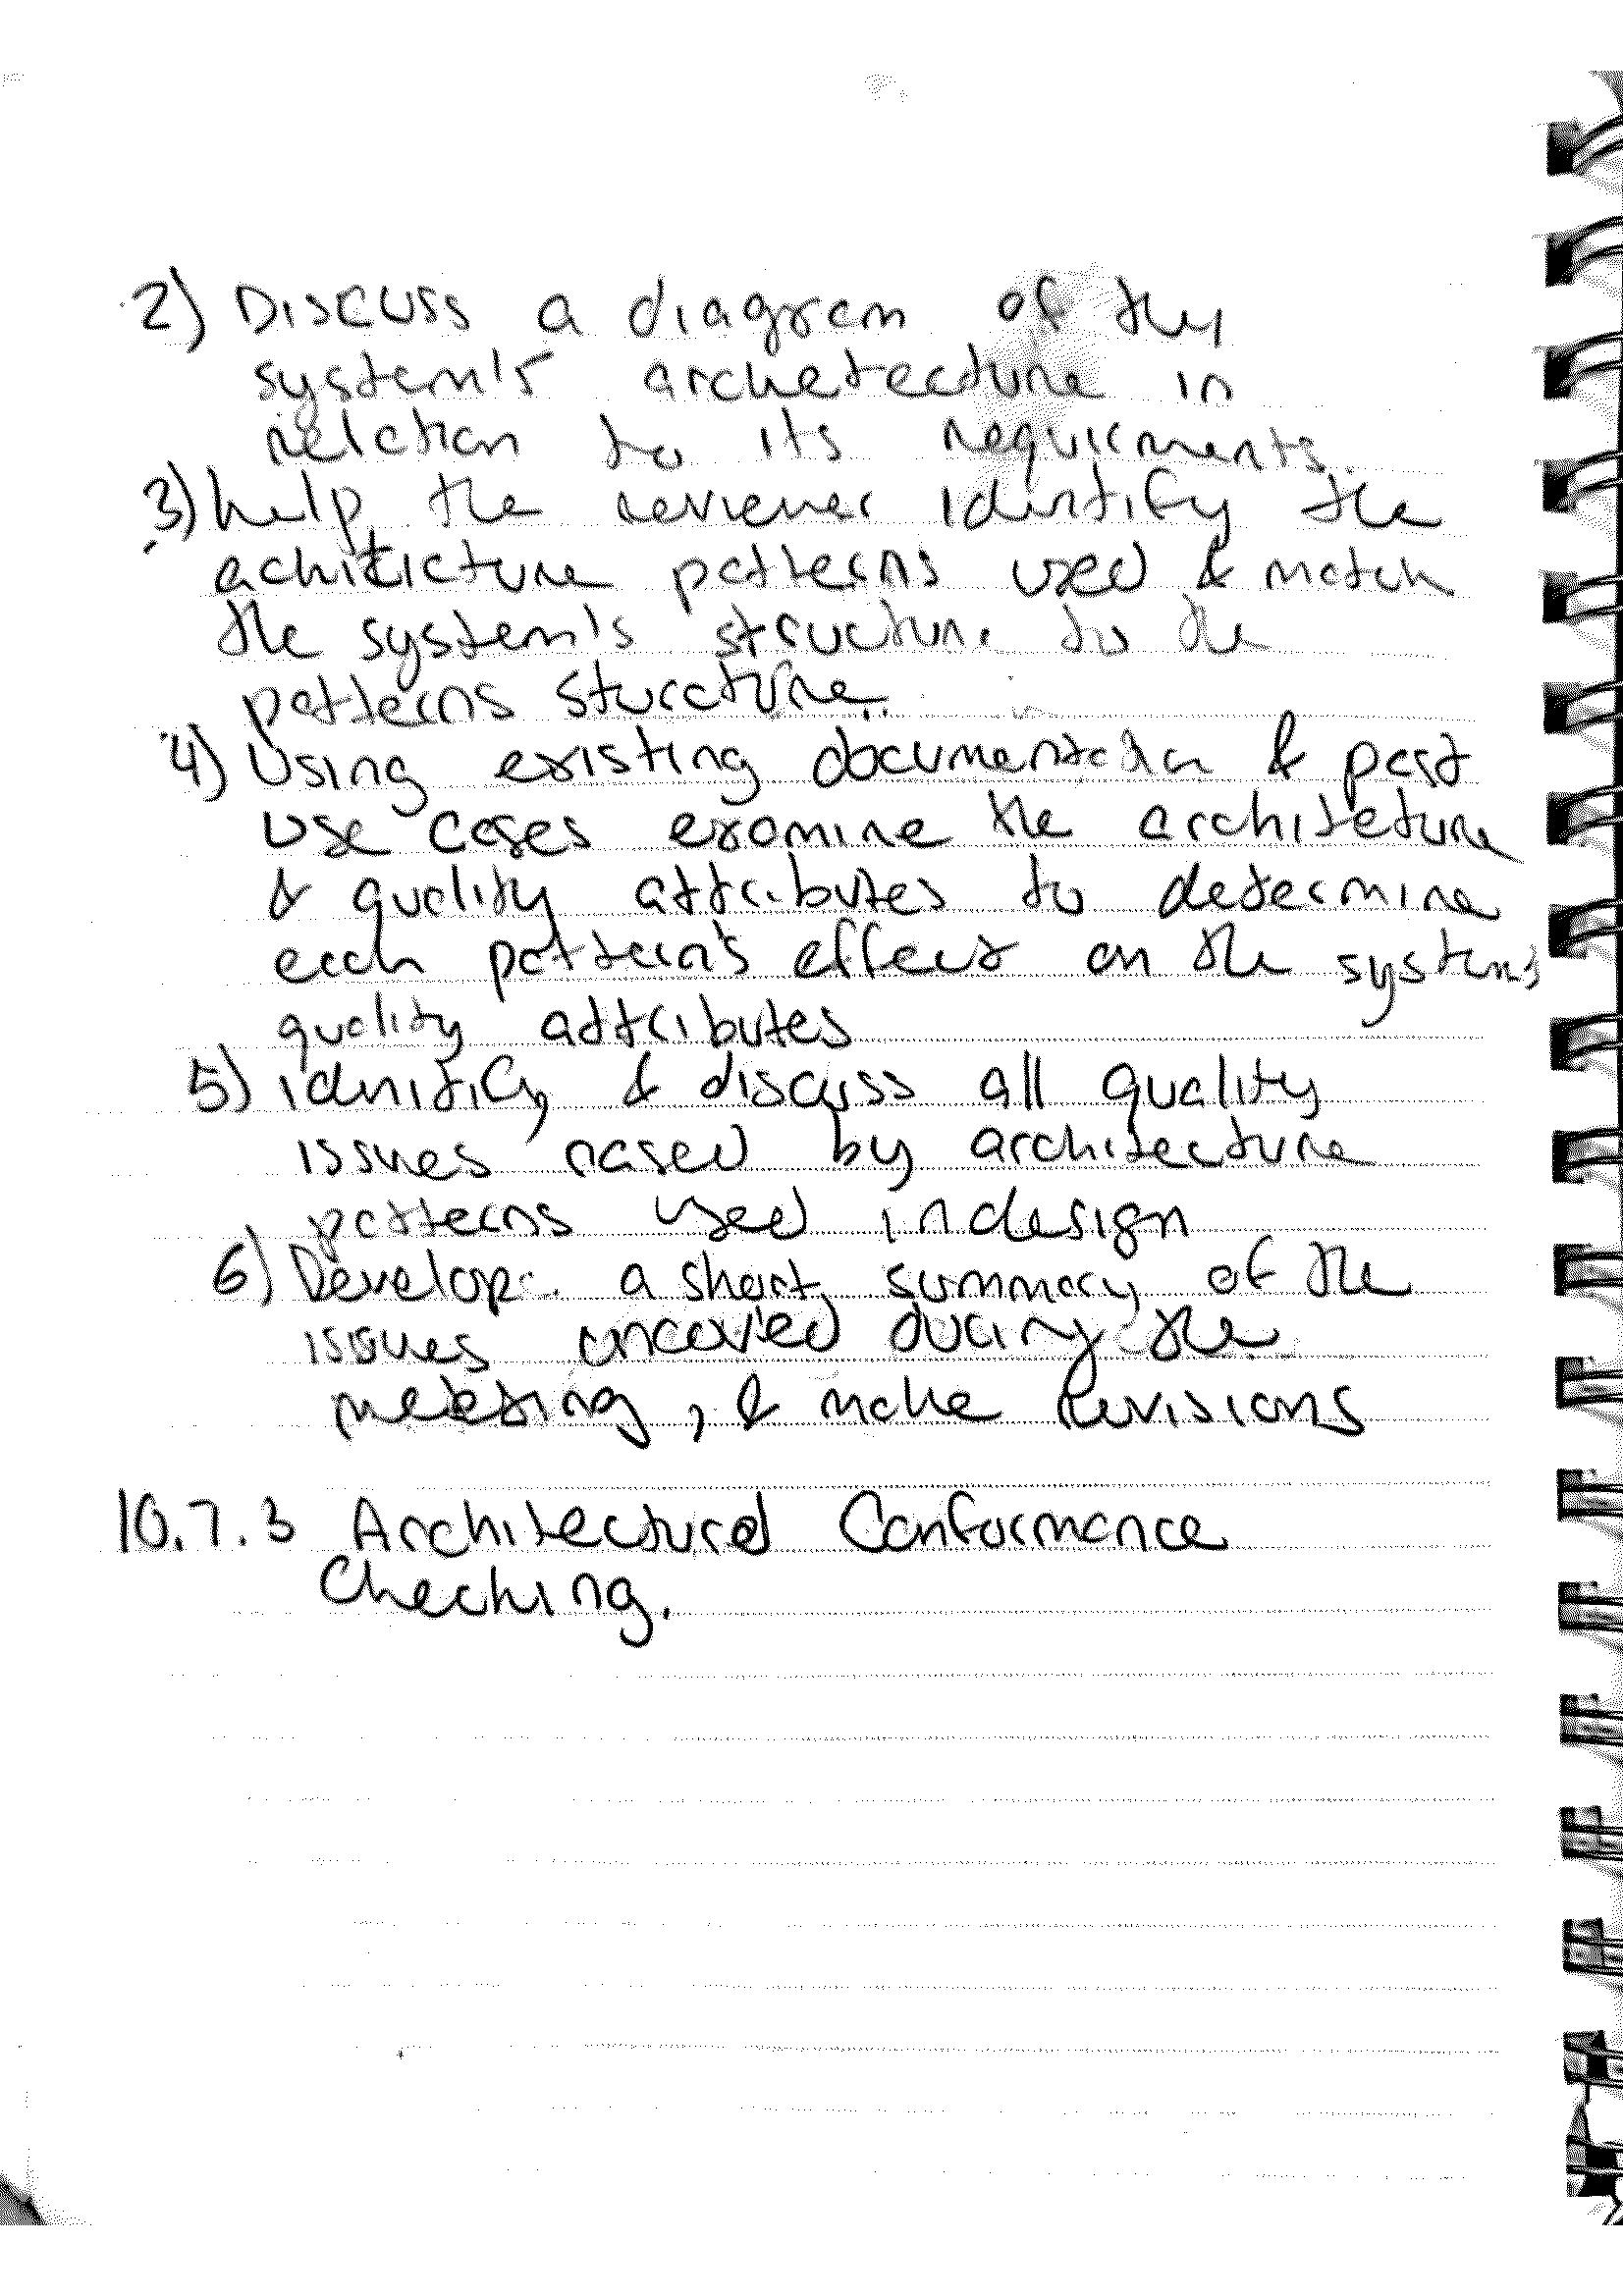 2) Discuss a diagram of they
system's archetecture in
relation to its requirments.
3) help the reviewer identify the
achiticture patterns used & match
the system's structure to the
patterns sturcture.
4) Using existing documentation & past
use cases examine the architeture
& quality attributes to determine
each pattern's effect on the system's
quality attributes
5) identify & discuss all quality
issues rased by architecture
patterns used in design
6) Develop a short summary of the
issues uncovered during the
meeting, & make revisions
10.7.3 Architectural Conformance
Checking.